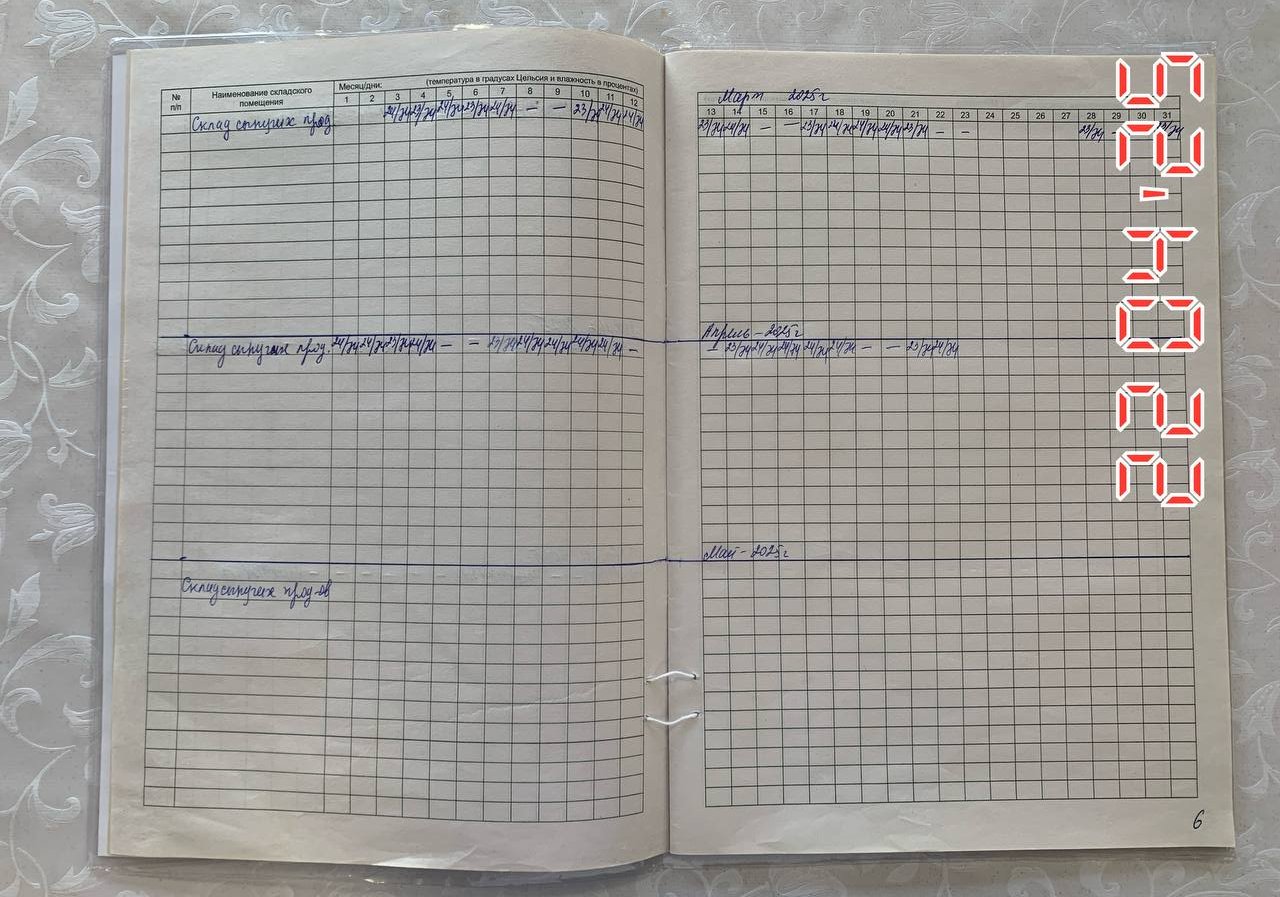 № п/п Наименование складского помещения Месяц/дни: (температура в градусах Цельсия и влажность в процентах)
1 2 3 4 5 6 7 8 9 10 11 12
Склад сыпучих прод. 24/74 23/74 24/74 23/74 24/74 – – 23/74 24/74 24/74
Склад сыпучих прод. 24/74 24/74 23/74 24/74 – – 23/74 24/74 24/74 24/74 24/74 –
Склад сыпучих прод-ов
Март 2025г
13 14 15 16 17 18 19 20 21 22 23 24 25 26 27 28 29 30 31
23/74 24/74 – – 23/74 24/74 24/74 24/74 23/74 – – 23/74 –
Апрель – 2025г
23/74 24/74 24/74 24/74 24/74 – – 23/74 24/74
Май – 2025г
6
22 04.25